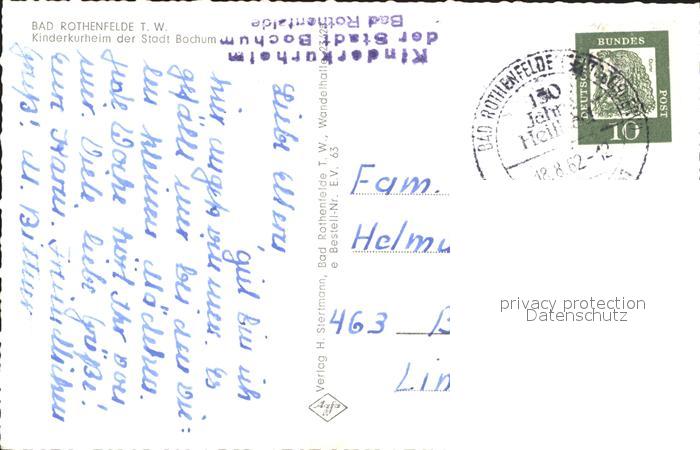 BAD ROTHENFELDE T. W.
Kinderkurheim der Stadt Bochum
Kinderkurheim
der Stadt Bochum
Bad Rothenfelde
Liebe Eltern!
gut bin ich
hier angekommen. Es
gefällt mir bei den
kleinen Mädchen.
Jede Woche hört Ihr von
mir. Viele liebe Grüße!
eure Karin. Freundlichen
Gruß!
Verlag H. Stertmann, Bad Rothenfelde T. W., Wandelhalle
e Bestell-Nr. E.V. 63
Agfa
Fam.
Helmu
463 B
Lin
BAD ROTHENFELDE
150
Jahre
18.8.62-12
DEUTSCHE
BUNDES
POST
10
privacy protection
Datenschutz